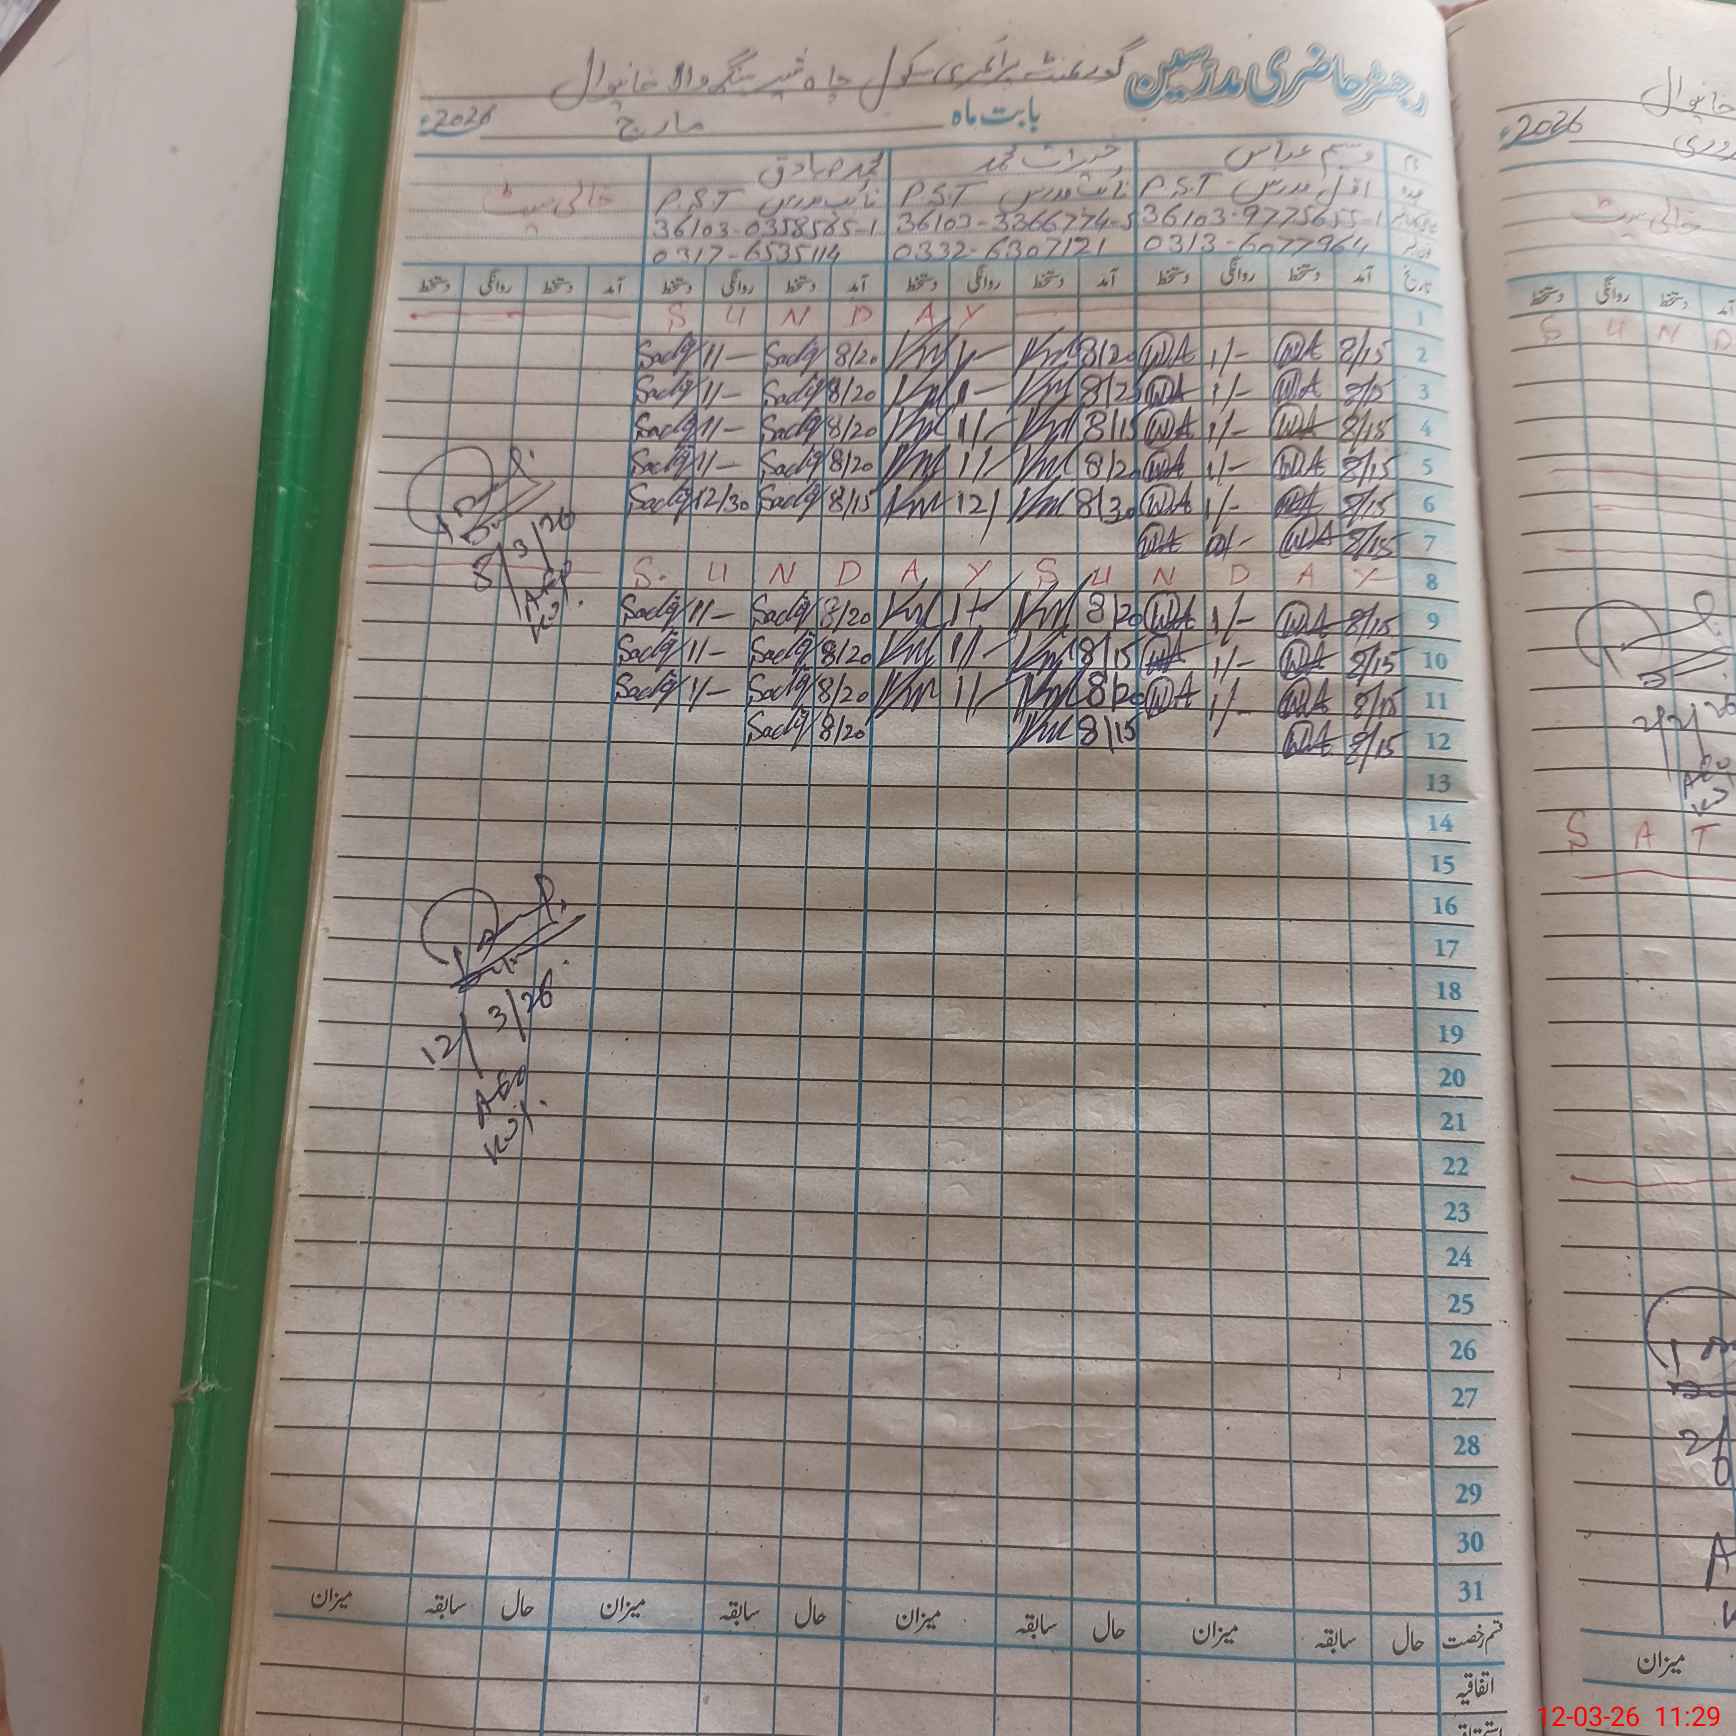 رجسٹر حاضری مدرسین گورنمنٹ پرائمری سکول چاہ شیر سنگھ والا خانیوال
بابت ماہ مارچ 2026ء
نام وسیم عباس خیرات محمد محمد صادق
عہدہ اول مدرس P.S.T نائب مدرس P.S.T نائب مدرس P.S.T خالی سیٹ
36103-9775655-1 36103-3366774-5 36103-0358565-1
0313-6077964 0332-6307121 0317-6535114
تاریخ آمد دستخط روانگی دستخط آمد دستخط روانگی دستخط آمد دستخط روانگی دستخط آمد دستخط روانگی دستخط
S U N D A Y 1
Sadiq 1/- Sadiq 8/20 8/20 WA 1/- WA 8/15 2
Sadiq 1/- Sadiq 8/20 8/2 WA 1/- WA 8/15 3
Sadiq 1/- Sadiq 8/20 1/- 8/15 WA 1/- WA 8/15 4
Sadiq 1/- Sadiq 8/20 1/- 8/20 WA 1/- WA 8/15 5
Sadiq 12/30 Sadiq 8/15 12/ 8/30 WA 1/- WA 8/15 6
WA WA 8/15 7
S U N D A Y S U N D A Y 8
Sadiq 1/- Sadiq 8/20 1/- 8/20 WA 1/- WA 8/15 9
Sadiq 1/- Sadiq 8/20 1/- 8/15 WA 1/- WA 8/15 10
Sadiq 1/- Sadiq 8/20 1/- 8/20 WA 1/- WA 8/15 11
Sadiq 8/20 8/15 WA 8/15 12
13
14
15
16
17
18
19
20
21
22
23
24
25
26
27
28
29
30
31
3/26
AEO
12/3/26
AEO
قسم رخصت حال سابقہ میزان حال سابقہ میزان حال سابقہ میزان حال سابقہ میزان
اتفاقیہ
خانیوال
2026ء
خالی سیٹ
دستخط روانگی دستخط آمد
S U N D
AEO
S A T
میزان
12-03-26 11:29